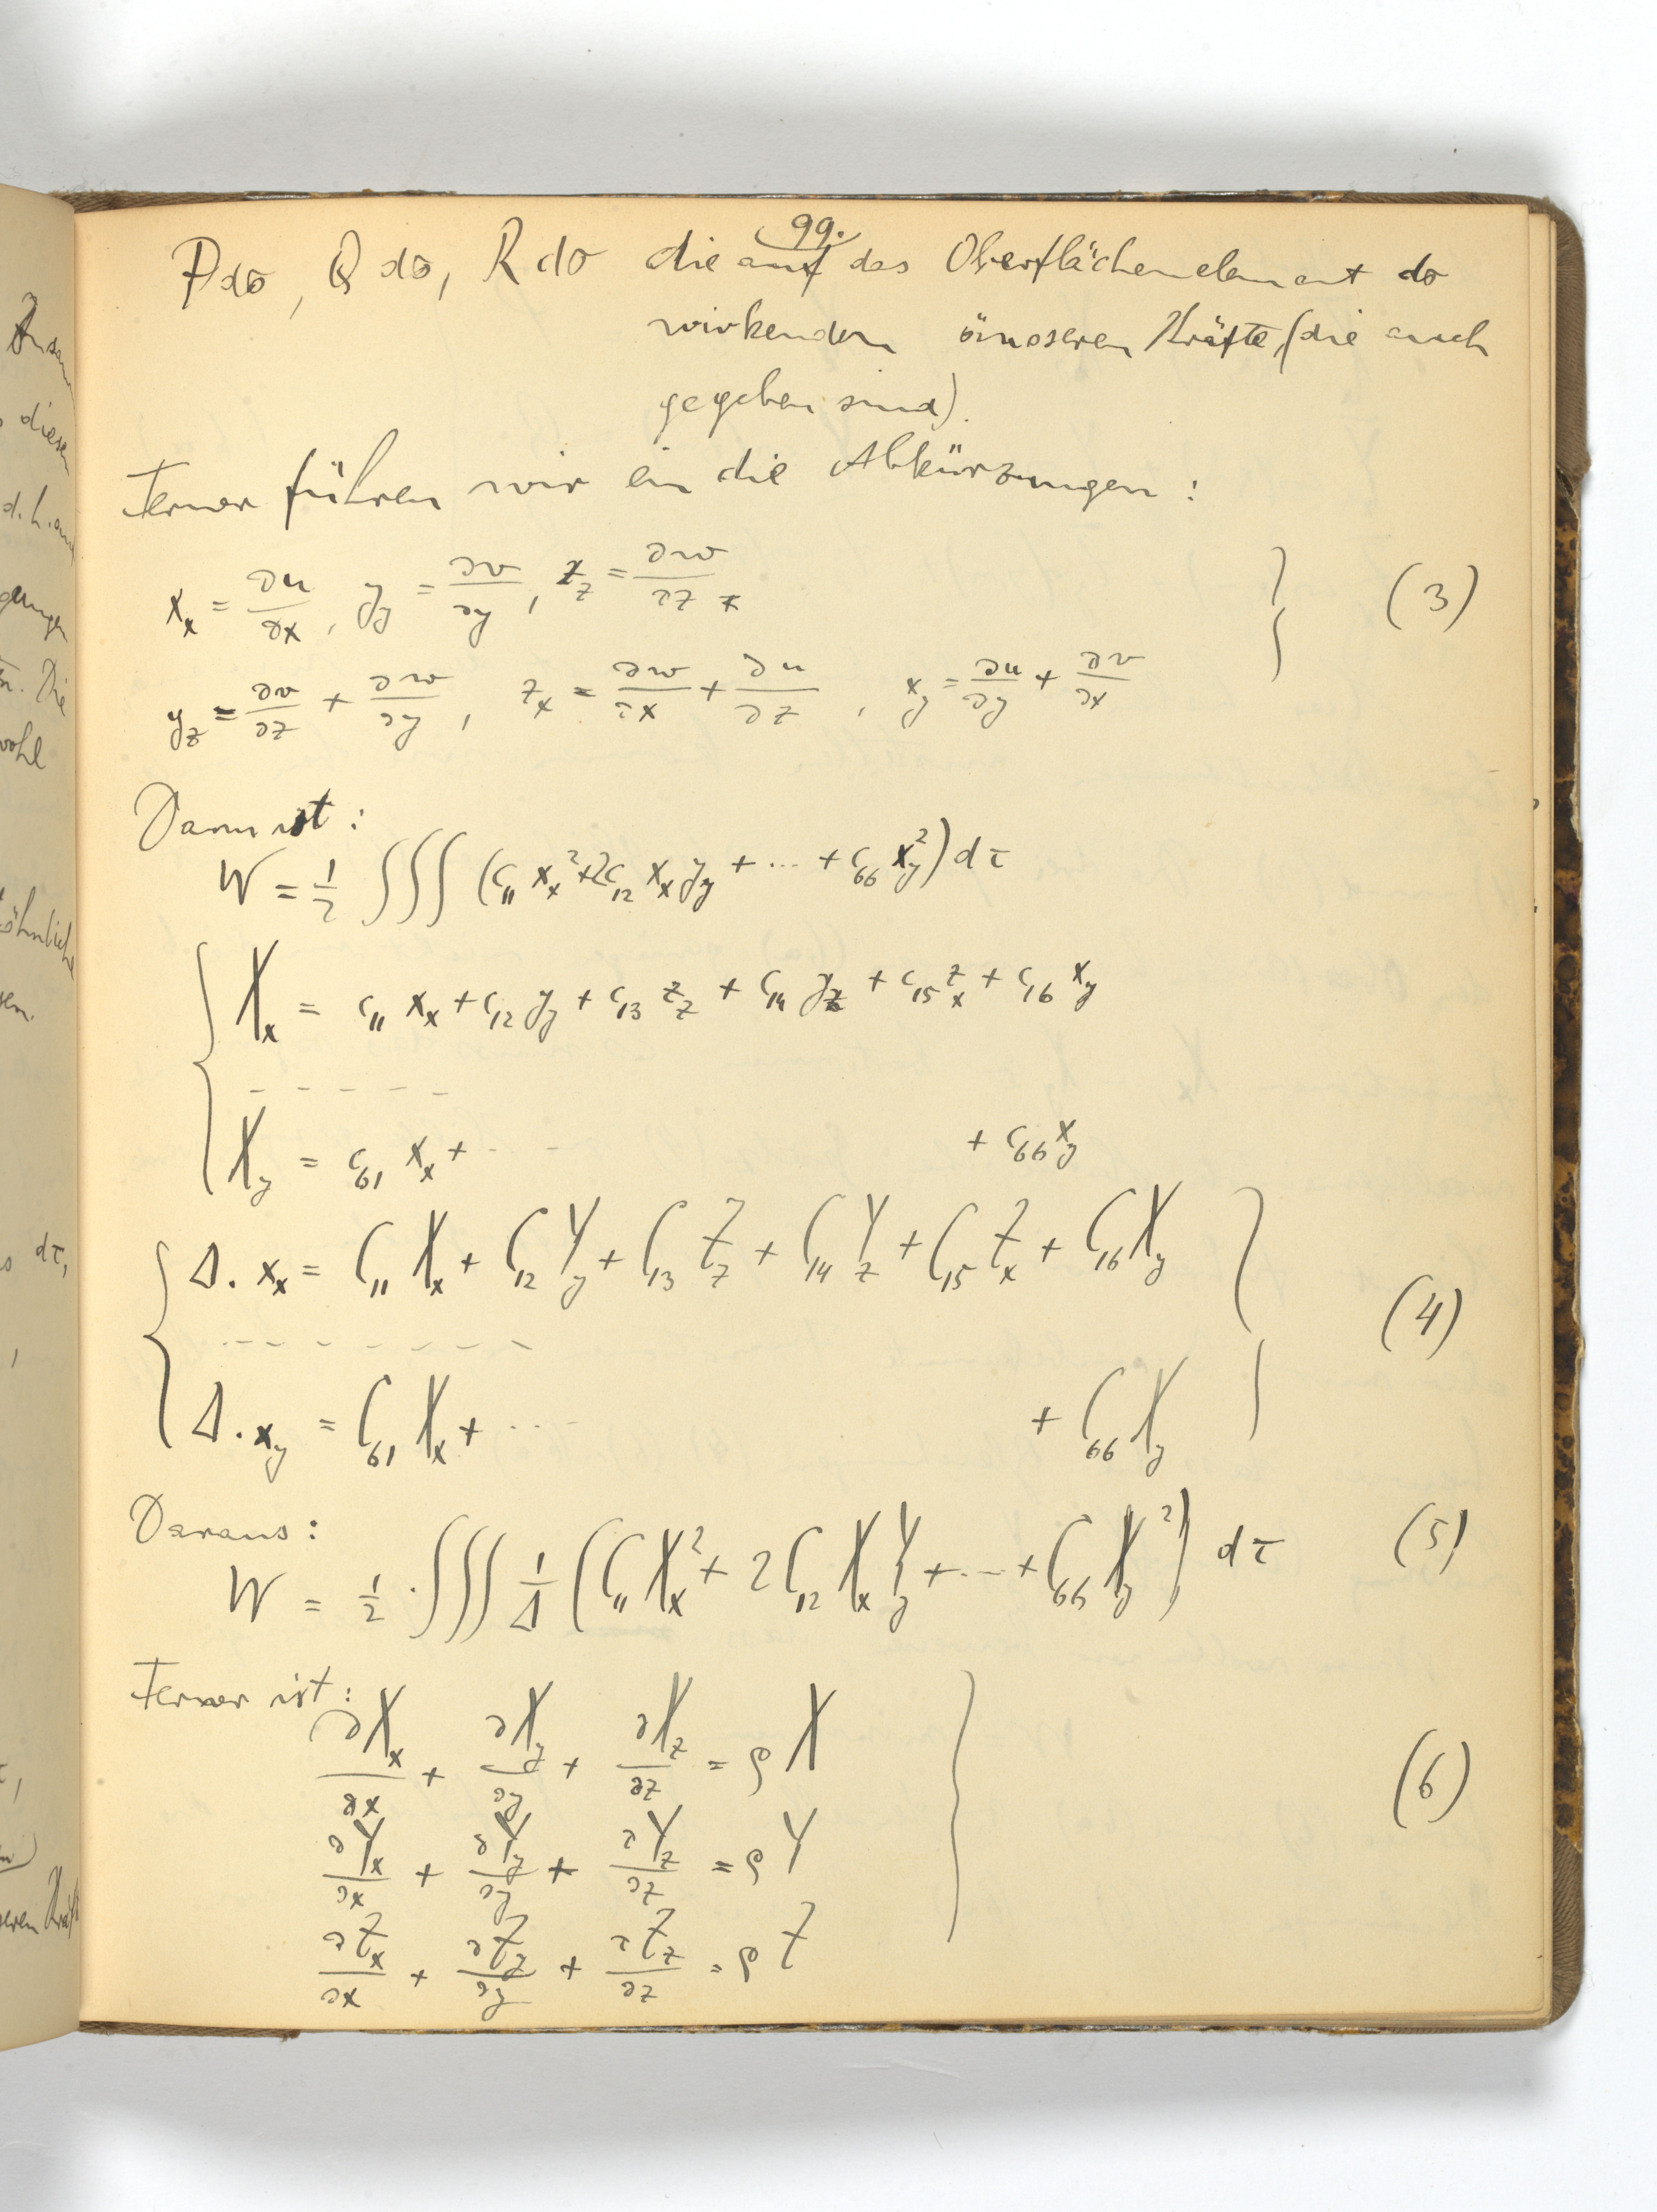 99.
P do, Q do, R do die auf das Oberflächenelement do
wirkenden äusseren Kräfte, (die auch
gegeben sind).
Ferner führen wir ein die Abkürzungen:
x_x = ∂u/∂x, y_y = ∂v/∂y, z_z = ∂w/∂z
y_z = ∂v/∂z + ∂w/∂y, z_x = ∂w/∂x + ∂u/∂z, x_y = ∂u/∂y + ∂v/∂x } (3)
Dann ist:
W = 1/2 ∫∫∫ (c_11 x_x² + 2c_12 x_x y_y + ... + c_66 x_y²) dτ
X_x = c_11 x_x + c_12 y_y + c_13 z_z + c_14 y_z + c_15 z_x + c_16 x_y
- - - - -
X_y = c_61 x_x + - - + c_66 x_y
Δ. x_x = C_11 X_x + C_12 Y_y + C_13 Z_z + C_14 Y_z + C_15 Z_x + C_16 X_y
- - - - - - - - (4)
Δ. x_y = C_61 X_x + ... + C_66 X_y
Daraus:
W = 1/2 . ∫∫∫ 1/Δ (C_11 X_x² + 2 C_12 X_x Y_y + ... + C_66 X_y²) dτ (5)
Ferner ist:
∂X_x/∂x + ∂X_y/∂y + ∂X_z/∂z = ρX
∂Y_x/∂x + ∂Y_y/∂y + ∂Y_z/∂z = ρY } (6)
∂Z_x/∂x + ∂Z_y/∂y + ∂Z_z/∂z = ρZ
diesen
d.h.
Die
wohl
öhnliche
dτ,